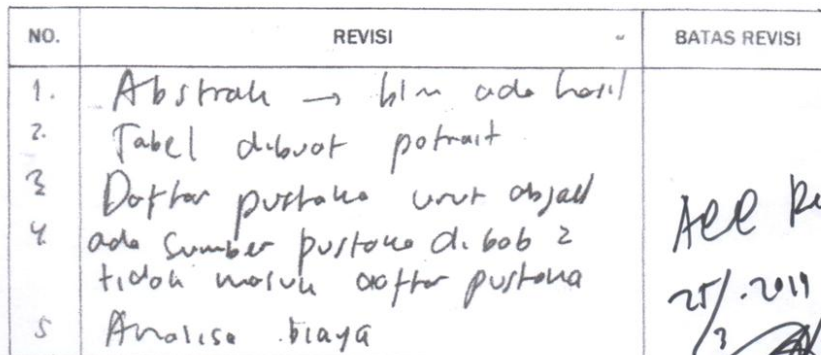 NO. REVISI BATAS REVISI
1. Abstrak → blm ada hasil
2. Tabel dibuat potrait
3 Daftar pustaka urut abjad
4. ada sumber pustaka di bab 2
tidak masuk daftar pustaka
5 Analisa biaya
Acc